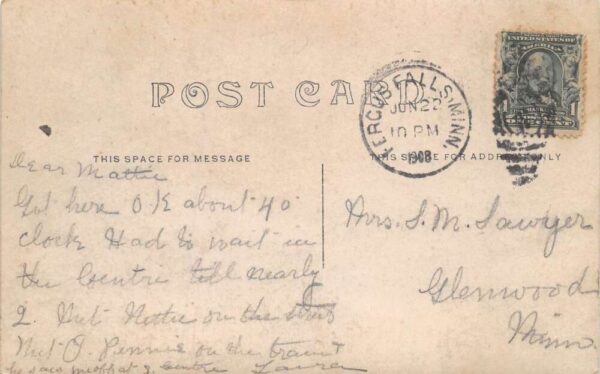 POST CARD
UNITED STATES OF AMERICA
1
FERGUS FALLS, MINN.
JUN 22
10 PM
1908
THIS SPACE FOR MESSAGE
THIS SPACE FOR ADDRESS ONLY
Dear Mattie
Got here O.K about 40
clock Had to wait in
the Centre till nearly
2. Met Nettie on the
Met O. Pennie on the train +
Centre Laura
Mrs. S. M. Sawyer
Glenwood
Minn.